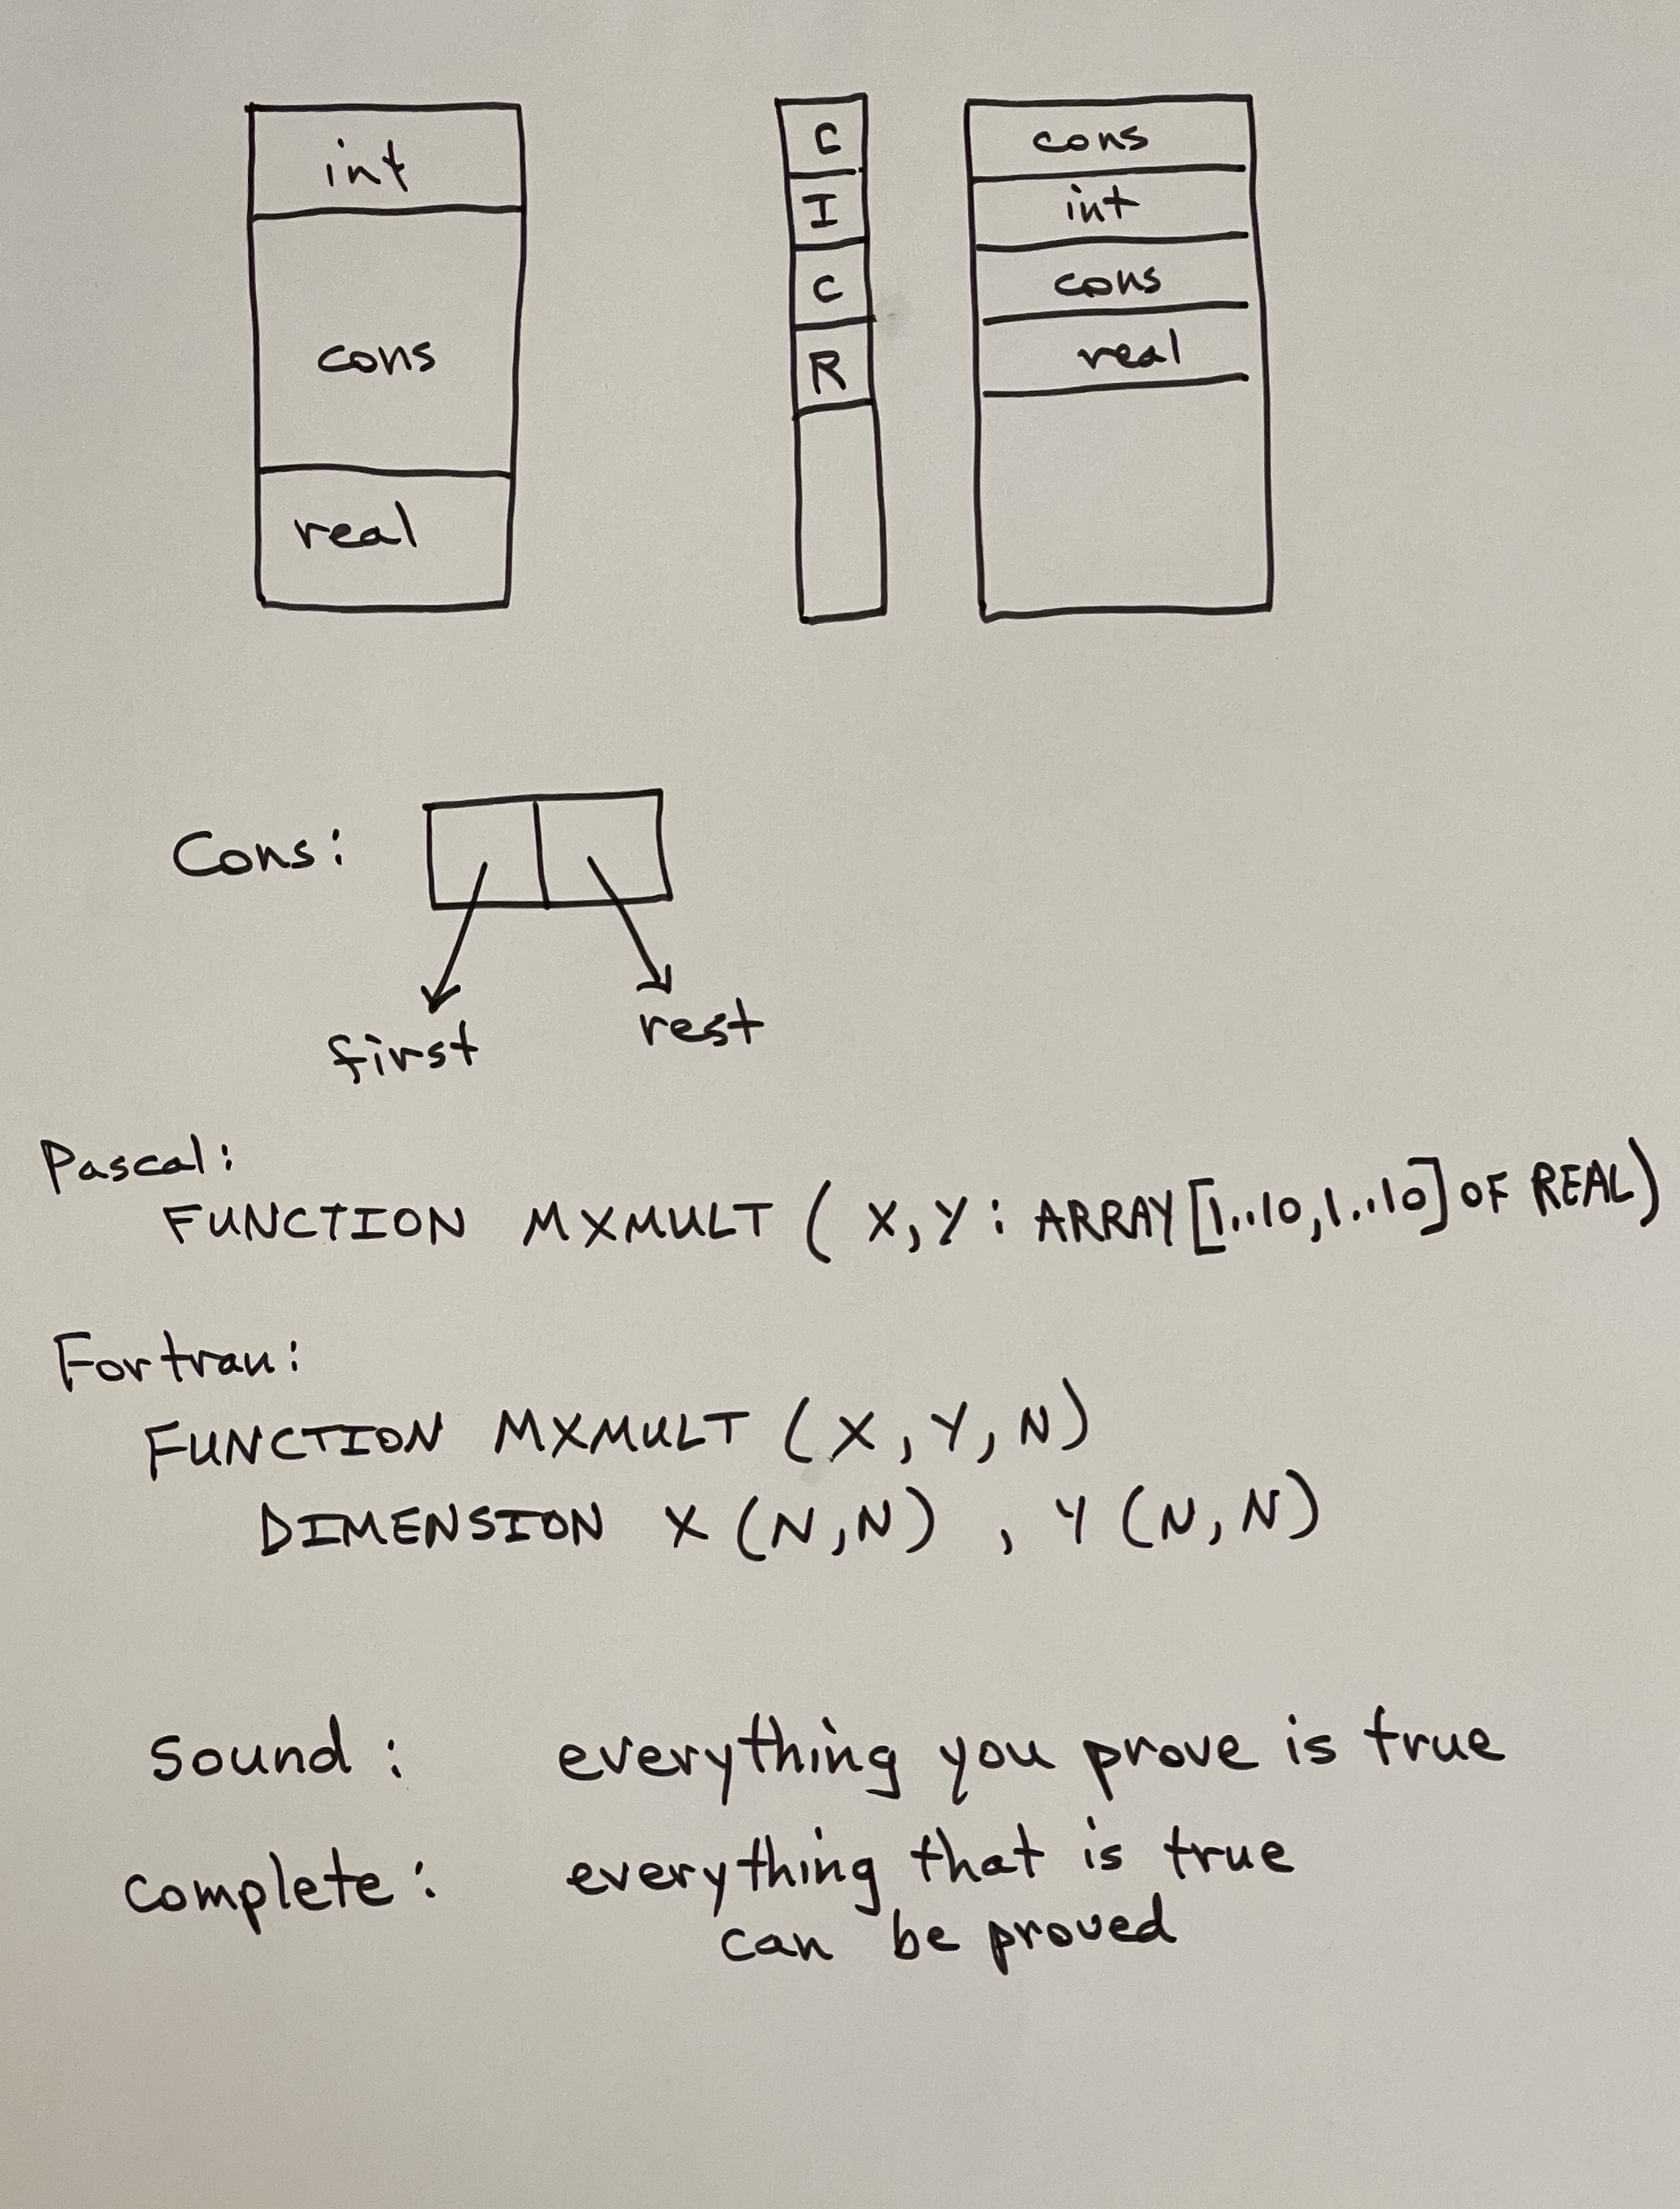 int
cons
real
C
I
C
R
cons
int
cons
real
Cons:
first
rest
Pascal:
FUNCTION MXMULT ( X, Y : ARRAY [1..10, 1..10] OF REAL)
Fortran:
FUNCTION MXMULT (X, Y, N)
DIMENSION X (N,N) , Y (N, N)
Sound : everything you prove is true
complete : everything that is true
can be proved